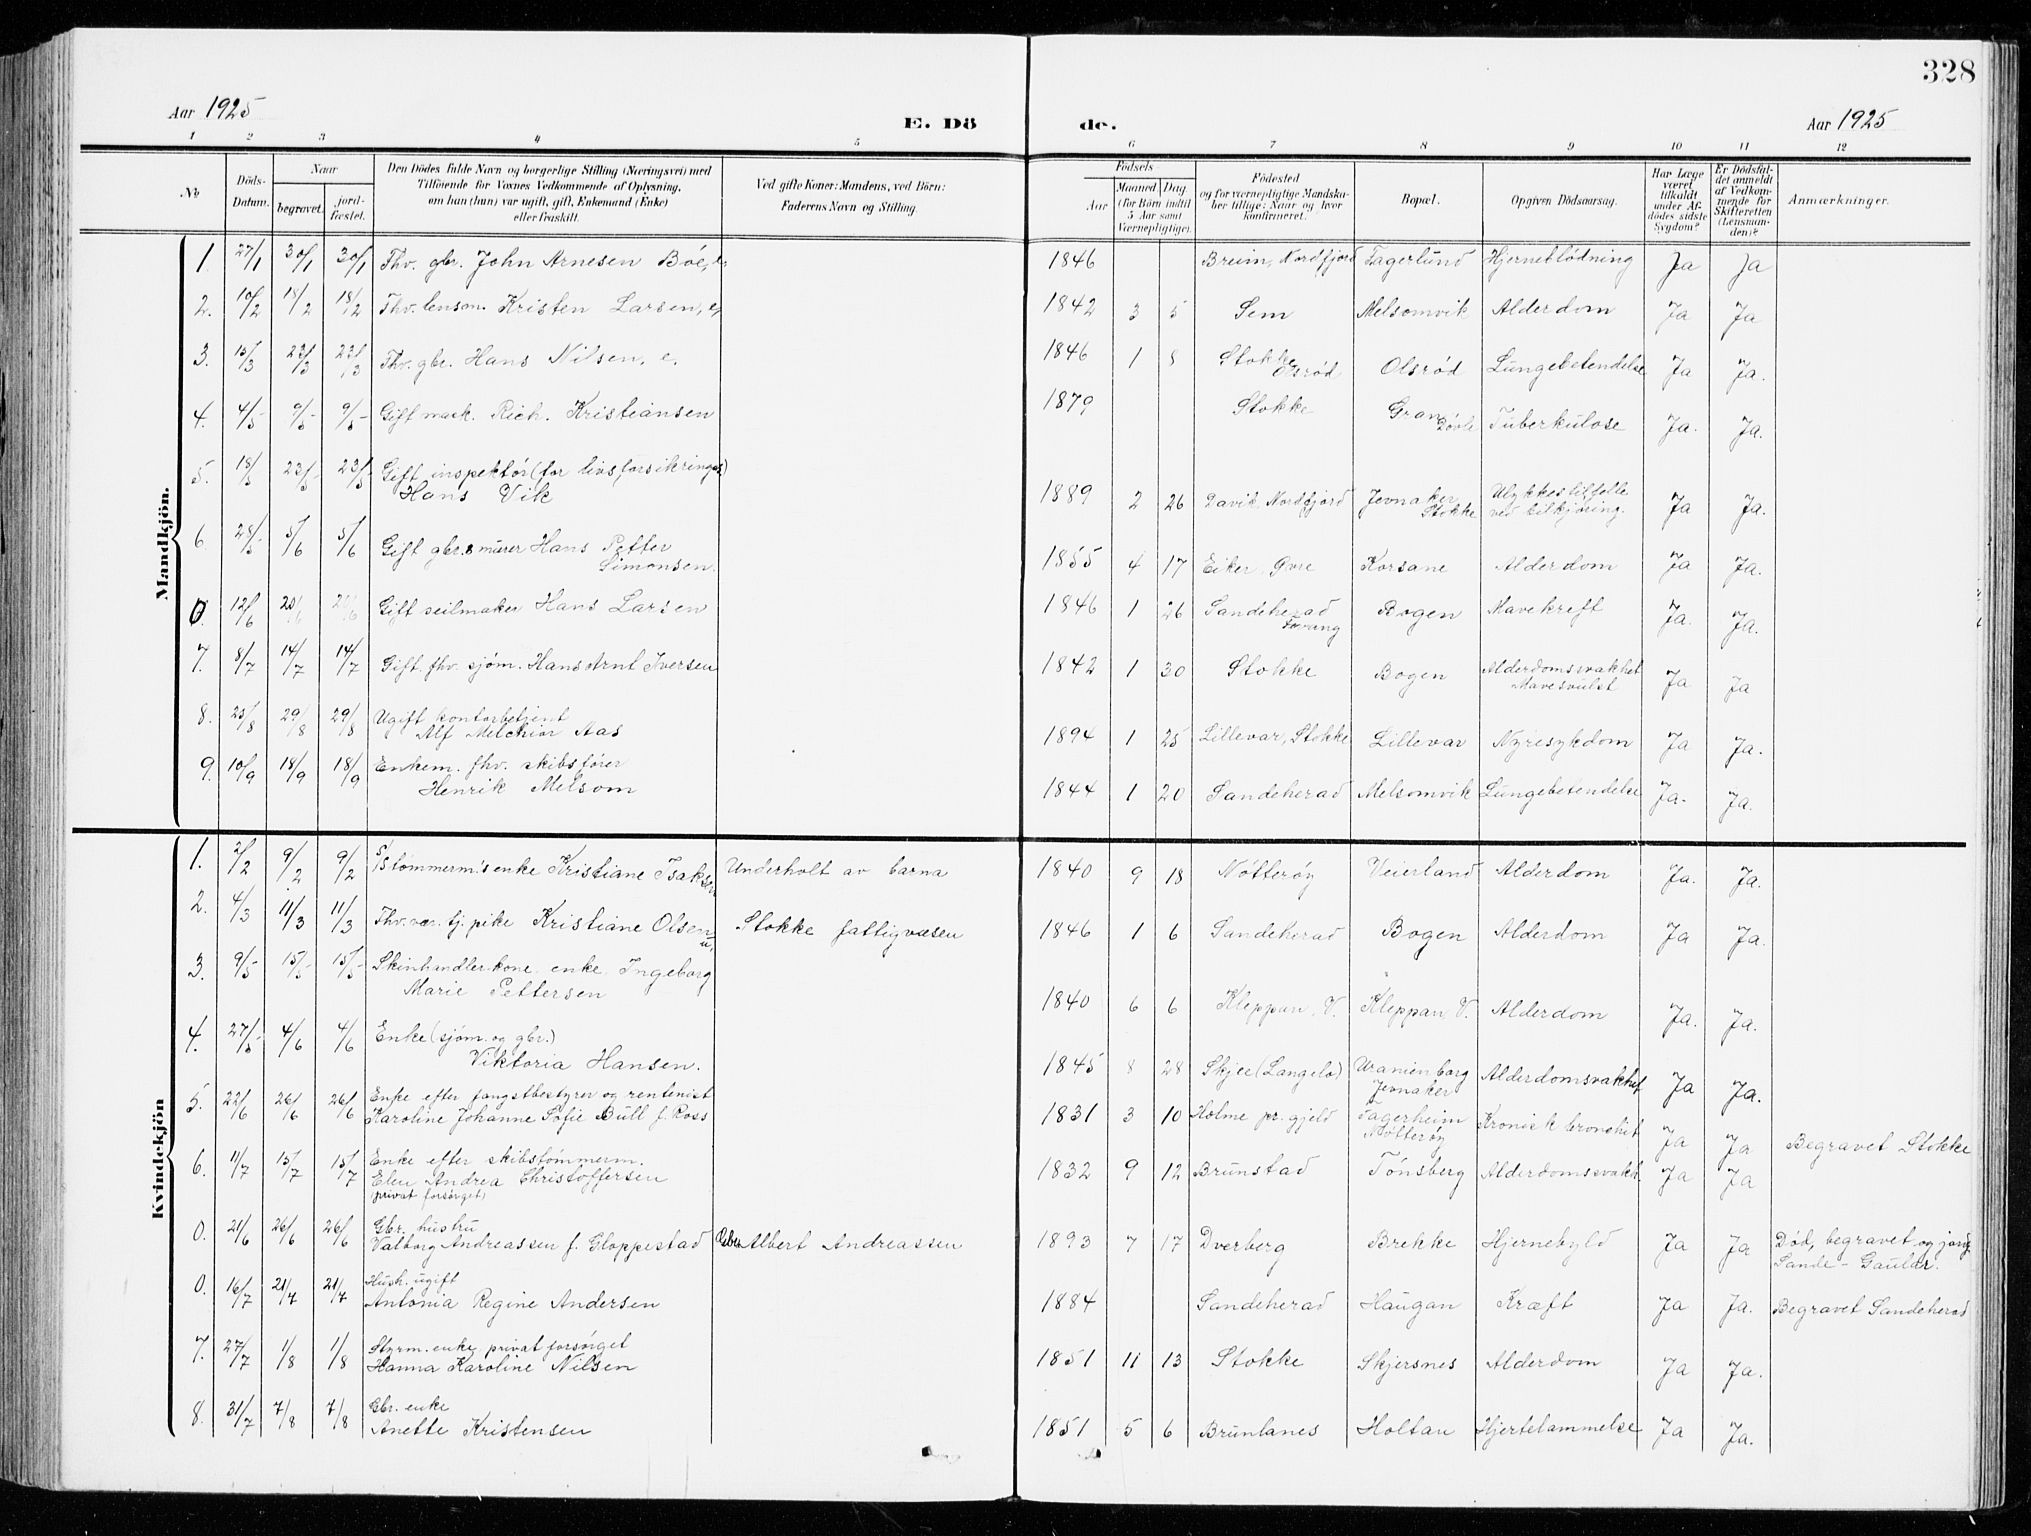 328
Aar 1925
E. Dö
de.
Aar 1925
1 2 3 4 5 6 7 8 9 10 11 12
No
Döds-Datum.
Naar
begravet.
jord-fæstet.
Den Dödes fulde Navn og borgerlige Stilling (Næringsvei) med
Tilföiende for Voxnes Vedkommende af Oplysning,
om han (hun) var ugift, gift, Enkemand (Enke)
eller fraskilt.
Ved gifte Koner: Mandens, ved Börn:
Faderens Navn og Stilling.
Födsels
Aar
Maaned. Dag.
(for Börn indtil
5 Aar samt
Værnepligtige).
Födested
og for værnepligtige Mandska-
ber tillige: Naar og hvor
konfirmeret.
Bopæl.
Opgiven Dödsaarsag.
Har Læge
været
tilkaldt
under Af-
dödes sidste
Sygdom?
Er Dödsfal-
det anmeldt
af Vedkom-
mende for
Skifteretten
(Lensman-
den)?
Anmærkninger.
Mandkjön.
1 27/1 30/1 30/1 Fhv. gbr. John Arnesen Böe, e. 1846 Breim, Nordfjord Fagerlund Hjerneblödning Ja Ja
2. 10/2 18/2 18/2 Fhv. lensm. Kristen Larsen, e, 1842 3 5 Sem Melsomvik Alderdom Ja Ja
3. 15/3 23/3 23/3 Fhv. gbr. Hans Nilsen, e. 1846 1 8 Stokke Olsröd Olsröd Lungebetendelse Ja Ja.
4. 4/5 9/5 9/5 Gift mask. Rich. Kristiansen 1879 Stokke Gran Dövle Tuberkulose Ja. Ja.
5. 18/5 23/5 23/5 Gift inspektör (for livsforsikringer)
Hans Vik 1889 2 26 Davik, Nordfjord Jevnaker Stokke Ulykkestilfelle ved bilkjöring. Ja Ja.
6 28/5 5/6 5/6 Gift gbr. & murer Hans Petter
Simonsen. 1855 4 17 Eiker Övre Korsane Alderdom Ja Ja.
0. 12/6 20/6 20/6 Gift seilmaker Hans Larsen 1846 1 26 Sandeherad Bogen Mavekreft Ja. Ja.
7. 8/7 14/7 14/7 Gift fhv. sjöm. Hans Arnt Iversen 1842 1 30 Stokke Bogen Alderdomssvakhet Mavesvulst Ja Ja
8. 25/8 29/8 29/8 Ugift kontorbetjent
Alf Melchior Aas 1894 1 25 Lillevar, Stokke Lillevar Nyresykdom Ja Ja.
9. 10/9 18/9 18/9 Enkem. fhv. skibsförer
Henrik Melsom 1844 1 20 Sandeherad Melsomvik Lungebetendelse Ja. Ja.
Kvindekjön
1. 2/2 9/2 9/2 S/Stömmerm's enke Kristiane Isaksen Underholt av barna 1840 9 18 Nötteröy Veierland Alderdom Ja. Ja.
2. 4/3 11/3 11/3 Fhv. vær. tj. pike Kristiane Olsen u. Stokke fattigvæsen 1846 1 6 Sandeherad Bogen Alderdom Ja Ja.
3. 9/5 15/5 15/5 Skinhandlerkone enke Ingeborg
Marie Pettersen 1840 6 6 Kleppan, V. Kleppan, V. Alderdom Ja. Ja.
4. 27/5 4/6 4/6 Enke (sjöm. og gbr.)
Viktoria Hansen. 1845 8 28 Skjee (Langelo) Uranienborg Jevnaker Alderdomsvakhet Ja Ja.
5. 22/6 26/6 26/6 Enke efter fangstbestyrer og rentenist
Karoline Johanne Sofie Bull f. Ross 1831 3 10 Holme pr. gjeld Fagerheim Nötteröy Kronisk bronchit Ja Ja Begravet Stokke
6. 11/7 15/7 15/7 Enke efter skibstömmerm.
Elen Andrea Christoffersen
(privat forsörget) 1832 9 12 Brunstad Tönsberg Alderdomssvakh. Ja Ja
0. 21/6 26/6 26/6 Gbr. hustru
Valborg Andreassen f. Gloppestad Gbr. Albert Andreassen 1893 7 17 Dverberg Brekke Hjernebyld Ja Ja Död, begravet og jordf.
Sande - Gaular.
0. 16/7 21/7 21/7 Hush. ugift
Antonia Regine Andersen 1884 Sandeherad Haugan Kræft Ja Ja. Begravet Sandeherad
7. 27/7 1/8 1/8 Styrm. enke privat forsörget
Hanna Karoline Nilsen 1851 11 13 Stokke Skjersnes Alderdom Ja Ja.
8. 31/7 7/8 7/8 Gbr. enke
Anette Kristensen 1851 5 6 Brunlanes Holtan Hjertelammelse Ja Ja.